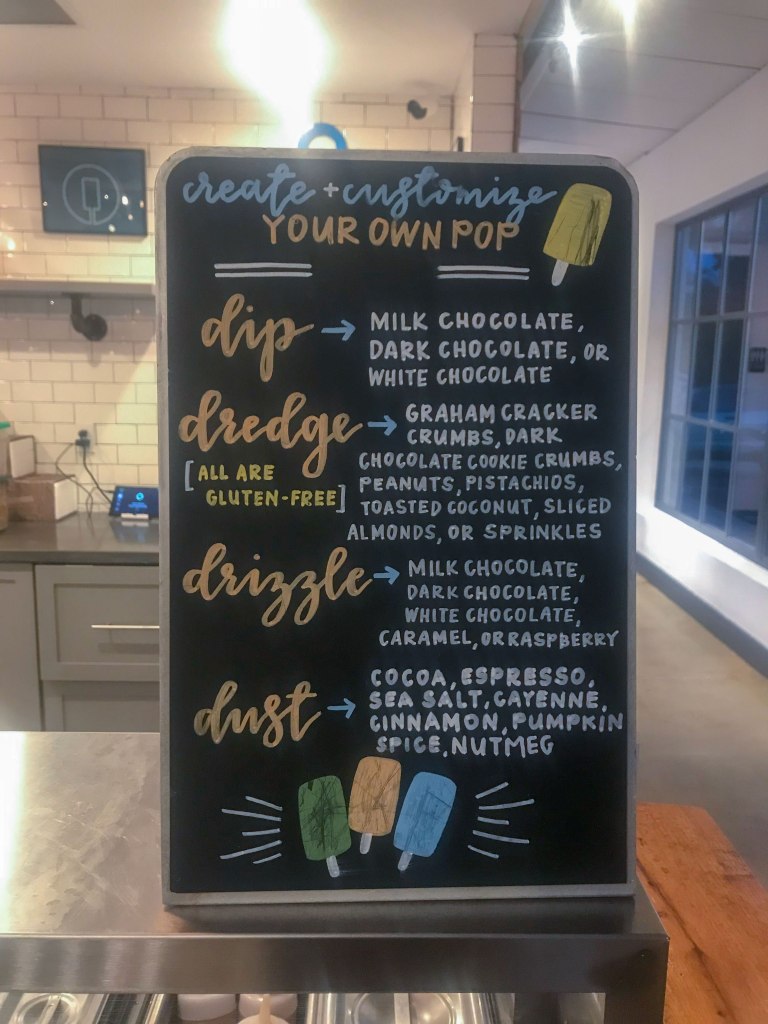 create + customize
YOUR OWN POP
dip → MILK CHOCOLATE,
DARK CHOCOLATE, OR
WHITE CHOCOLATE
dredge → GRAHAM CRACKER
CRUMBS, DARK
[ALL ARE
GLUTEN-FREE]
CHOCOLATE COOKIE CRUMBS,
PEANUTS, PISTACHIOS,
TOASTED COCONUT, SLICED
ALMONDS, OR SPRINKLES
drizzle → MILK CHOCOLATE,
DARK CHOCOLATE,
WHITE CHOCOLATE,
CARAMEL, OR RASPBERRY
dust → COCOA, ESPRESSO,
SEA SALT, CAYENNE,
CINNAMON, PUMPKIN
SPICE, NUTMEG